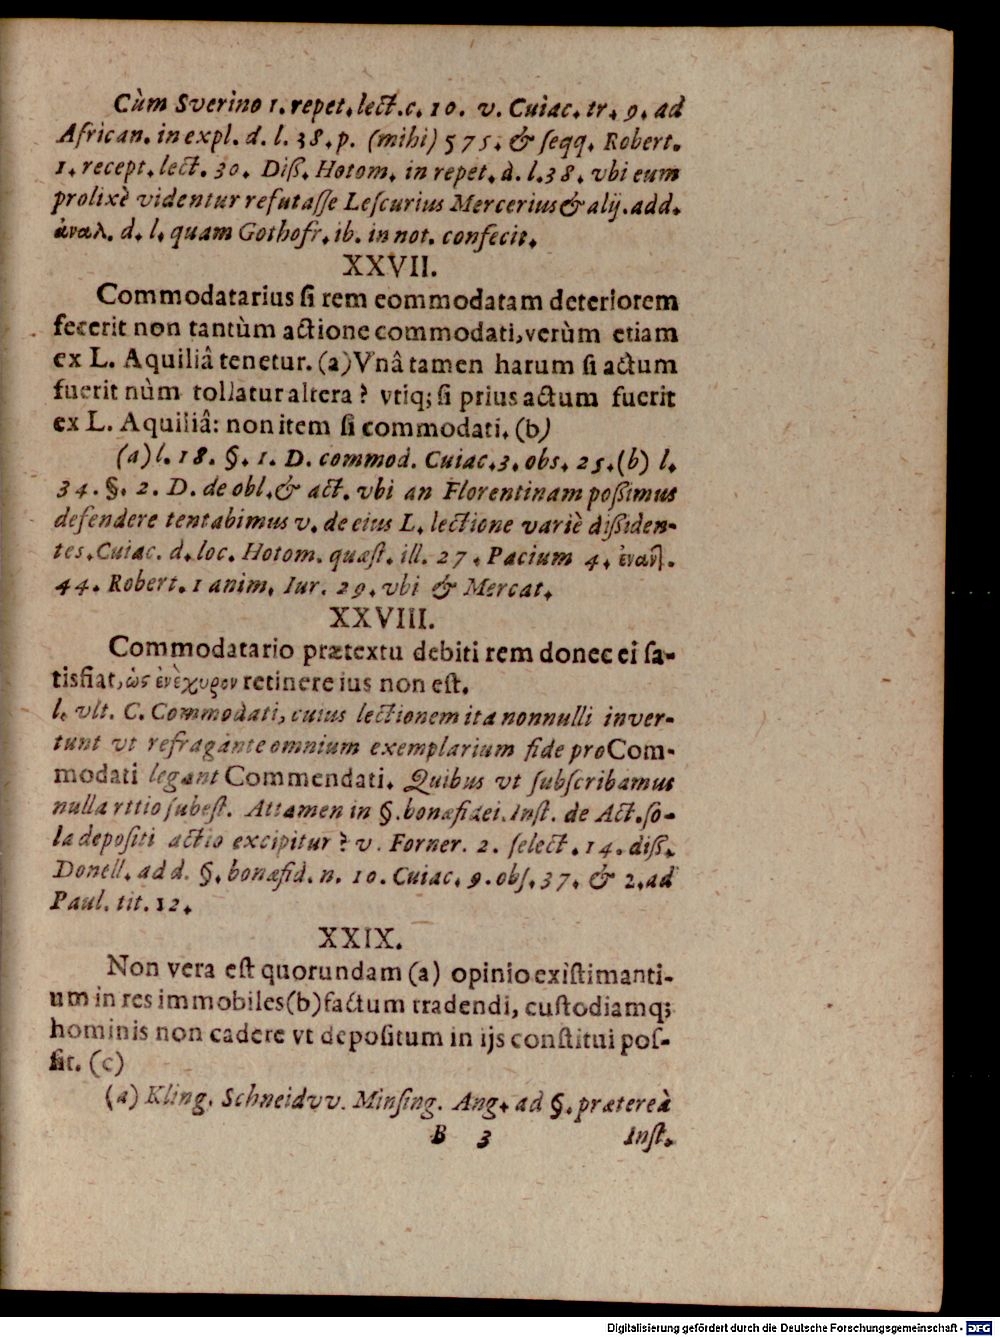 Cùm Sverino 1. repet. lect. c. 10. v. Cuiac. tr. 9. ad
African. in expl. d. l. 38. p. (mihi) 575. & ſeqq. Robert.
1. recept. lect. 30. Diß. Hotom. in repet. d. l. 38. vbi eum
prolixè videntur refutaſſe Leſcurius Mercerius & alij. add.
ἀναλ. d. l. quam Gothofr. ib. in not. confecit.
XXVII.
Commodatarius ſi rem commodatam deteriorem
fecerit non tantùm actione commodati, verùm etiam
ex L. Aquiliâ tenetur. (a) Vnâ tamen harum ſi actum
fuerit nùm tollatur altera? vtiq; ſi prius actum fuerit
ex L. Aquiliâ: non item ſi commodati. (b)
(a) l. 18. §. 1. D. commod. Cuiac. 3. obs. 25. (b) l.
34. §. 2. D. de obl. & act. vbi an Florentinam poßimus
defendere tentabimus v. de eius L. lectione variè dißiden-
tes. Cuiac. d. loc. Hotom. quæſt. ill. 27. Pacium 4. ἐναντ.
44. Robert. 1 anim. Iur. 29. vbi & Mercat.
XXVIII.
Commodatario prætextu debiti rem donec ei ſa-
tisfiat, ὡς ἐνέχυρον retinere ius non eſt.
l. vlt. C. Commodati, cuius lectionem ita nonnulli inver-
tunt vt refragante omnium exemplarium fide pro Com-
modati legant Commendati. Quibus vt ſubſcribamus
nulla rttio ſubeſt. Attamen in §. bonæ fidei. Inſt. de Act. ſo-
la depoſiti actio excipitur? v. Forner. 2. ſelect. 14. diß.
Donell. ad d. §. bonæ fid. n. 10. Cuiac. 9. obſ. 37. & 2. ad
Paul. tit. 12.
XXIX.
Non vera eſt quorundam (a) opinio exiſtimanti-
um in res immobiles (b) factum tradendi, cuſtodiamq;
hominis non cadere vt depoſitum in ijs conſtitui poſ-
ſit. (c)
(a) Kling. Schneidvv. Minſing. Ang. ad §. prætereà
B 3 Inſt.
Digitalisierung gefördert durch die Deutsche Forschungsgemeinschaft - DFG